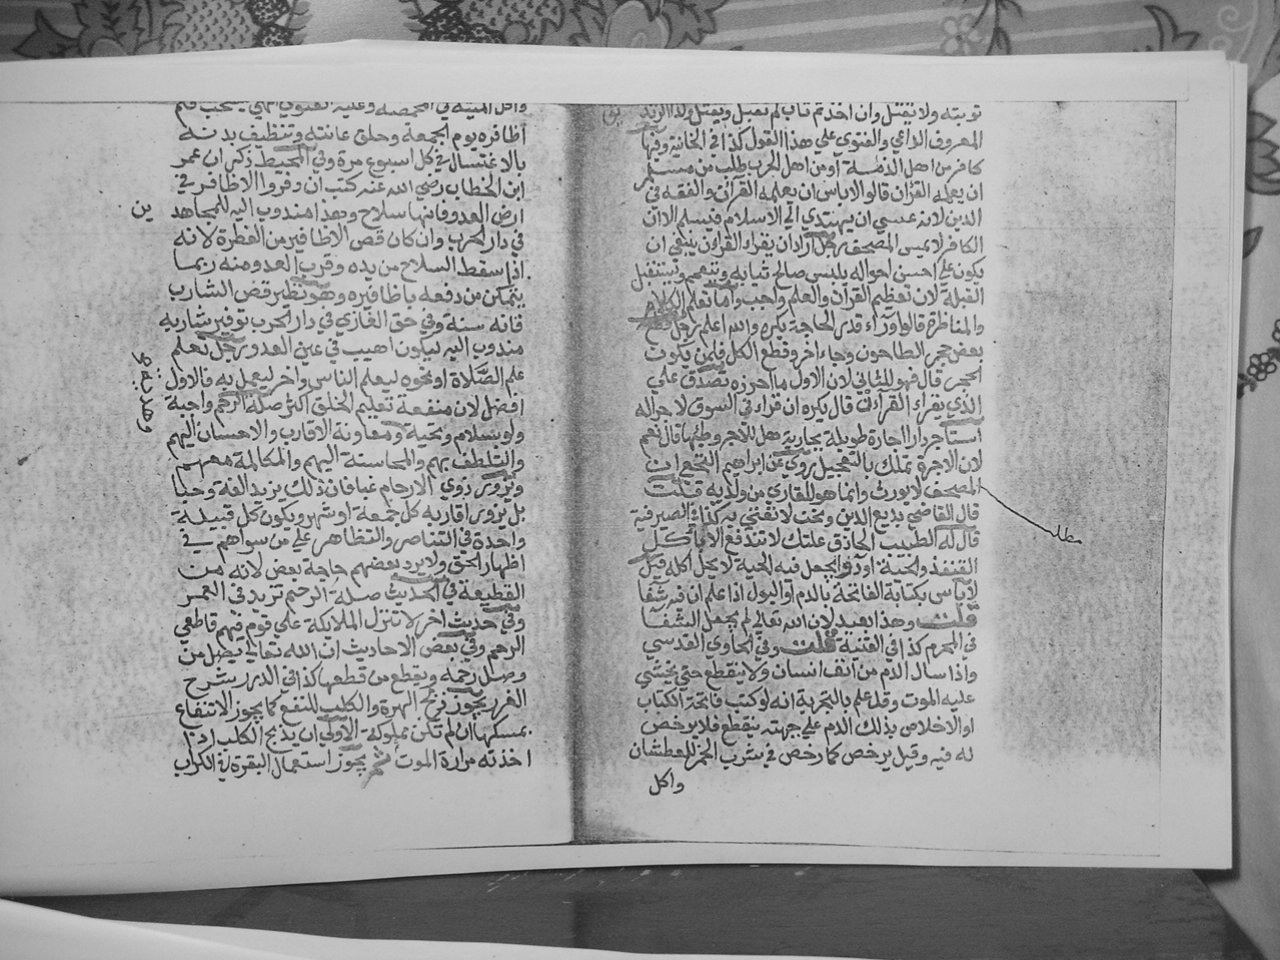 توبته ولا يقتل وان اخذ ثم تاب لم تقبل ويقتل وكذا الزنديق
المعروف الداعي والفتوي علي هذا القول كذا في الخانية وفيها
كافر من اهل الذمة او من اهل الحرب طلب من مسلم
ان يعلمه القران قالوا لا باس ان يعلمه القران والفقه في
الدين لانه عسي ان يهتدي الي الاسلام فيسلم الا ان
الكافر لا يمس المصحف رجل اراد ان يقراء القران ينبغي ان
يكون علي احسن احواله يلبس صالح ثيابه ويتعمم ويستقبل
القبلة لان تعظيم القران والعلم واجب واما تعلم الكلام
والمناظرة قالوا وراء قدر الحاجة يكره والله اعلم رجل قطع
بعض حجر الطاحون وجاء اخر وقطع الكل فلمن يكون
الحجر قال فهو للثاني لان الاول ما احرزه تصدق علي
الذي يقراء القران قال يكره ان قراء في السوق لا حواله
استاجر دارا اجارة طويلة بجارية هل للآجر وطئها قال نعم
لان الاجرة تملك بالتعجيل روي عن ابراهيم النخعي ان
المصحف لا يورث وانما هو للقاري من ولديه قلت
قال القاضي بديع الدين وبحث لا نفتي به كذا في الصيرفية
قال له الطبيب الحاذق علتك لا تندفع الا باكل
القنفذ والحية او دواء يجعل فيه الحية لا يحل اكله قيل
لا باس بكتابة الفاتحة بالدم او البول اذا علم ان فيه شفا
قلت وهذا بعيد لان الله تعالي لم يجعل الشفا
في المحرم كذا في القنية قلت وفي الحاوي القدسي
واذا سال الدم من انف انسان ولا ينقطع حتي يخشي
عليه الموت وقد علم بالتجربة انه لو كتب فاتحة الكتاب
او الاخلاص بذلك الدم علي جبهته ينقطع فلا يرخص
له فيه وقيل يرخص كما رخص في شرب الخمر للعطشان
واكل
مطلب
واكل الميتة في المخمصة وعليه الفتوي انتهي يستحب قلم
اظافره يوم الجمعة وحلق عانته وتنظيف بدنه
بالاغتسال في كل اسبوع مرة وفي المحيط ذكر ان عمر
ابن الخطاب رضي الله عنه كتب ان وفروا الاظافر في
ارض العدو فانها سلاح وهذا مندوب اليه للمجاهدين
في دار الحرب وان كان قص الاظافير من الفطرة لانه
اذا سقط السلاح من يده وقرب العدو منه ربما
يتمكن من دفعه باظافيره وهو نظير قص الشارب
فانه سنة وفي حق الغازي في دار الحرب توفير شاربه
مندوب اليه ليكون اهيب في عين العدو رجل تعلم
علم الصلاة او نحوه ليعلم الناس واخر ليعمل به فالاول
افضل لان منفعة تعليم الخلق اكثر صلة الرحم واجبة
ولو بسلام وتحية وهدية ومعاونة الاقارب والاحسان اليهم
والتلطف بهم والمجالسة اليهم والمكالمة معهم
ويزور ذوي الارحام غبا فان ذلك يزيد الفة وحبا
بل يزور اقاربه كل جمعة او شهر ويكون كل قبيلة
واحدة في التناصر والتظاهر علي من سواهم في
اظهار الحق ولا يرد بعضهم حاجة بعض لانه من
القطيعة في الحديث صلة الرحم تزيد في العمر
وفي حديث اخر لا تنزل الملايكة علي قوم فيهم قاطعي
الرحم وفي بعض الاحاديث ان الله تعالي يصل من
وصل رحمه ويقطع من قطعها كذا في الدرر شرح
الغرر يجوز ذبح الهرة والكلب للنفع كما يجوز الانتفاع
بمسكها ان لم تكن مملوكة الاولي ان يذبح الكلب اذا
اخذته مرارة الموت يجوز استعمال البقرة في الكراب